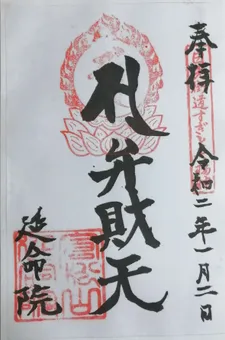 奉拝 令和二年一月二日
道すぎと
札弁財天
延命院